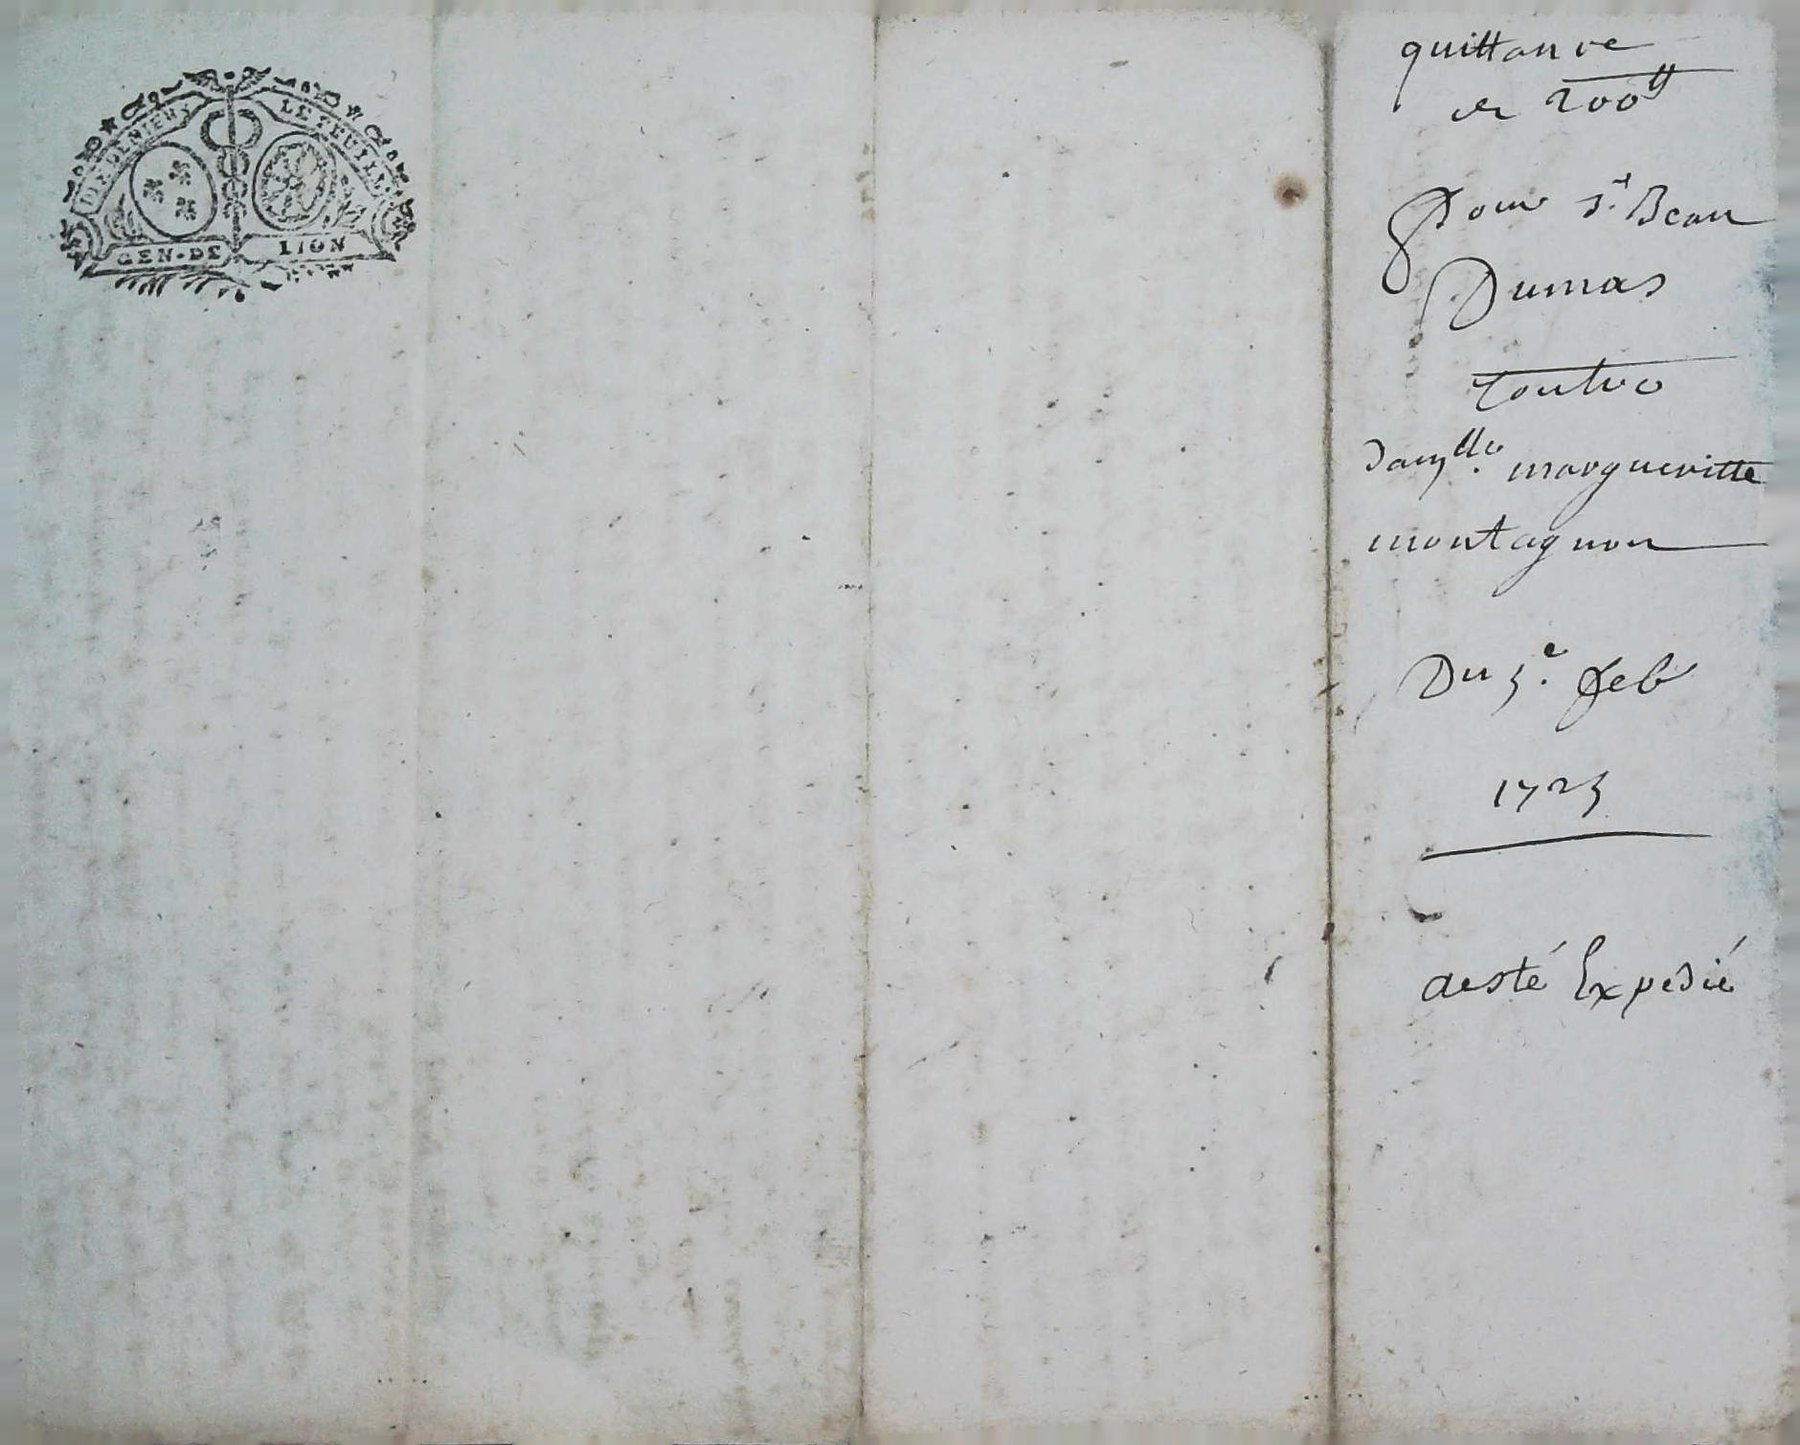 DIX DENIERS LE FEUILLET
GEN·DE LION
quittance
de 200lt
Pour Sr Jean
Dumas
Contre
damlle margueritte
montagnon
Du 5e feb
1725
aesté Expedié